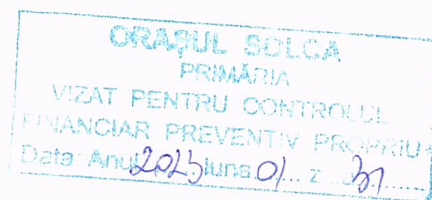 ORAȘUL SOLCA
PRIMĂRIA
VIZAT PENTRU CONTROLUL
FINANCIAR PREVENTIV PROPRIU
Data: Anul 2023 luna 01 z 31